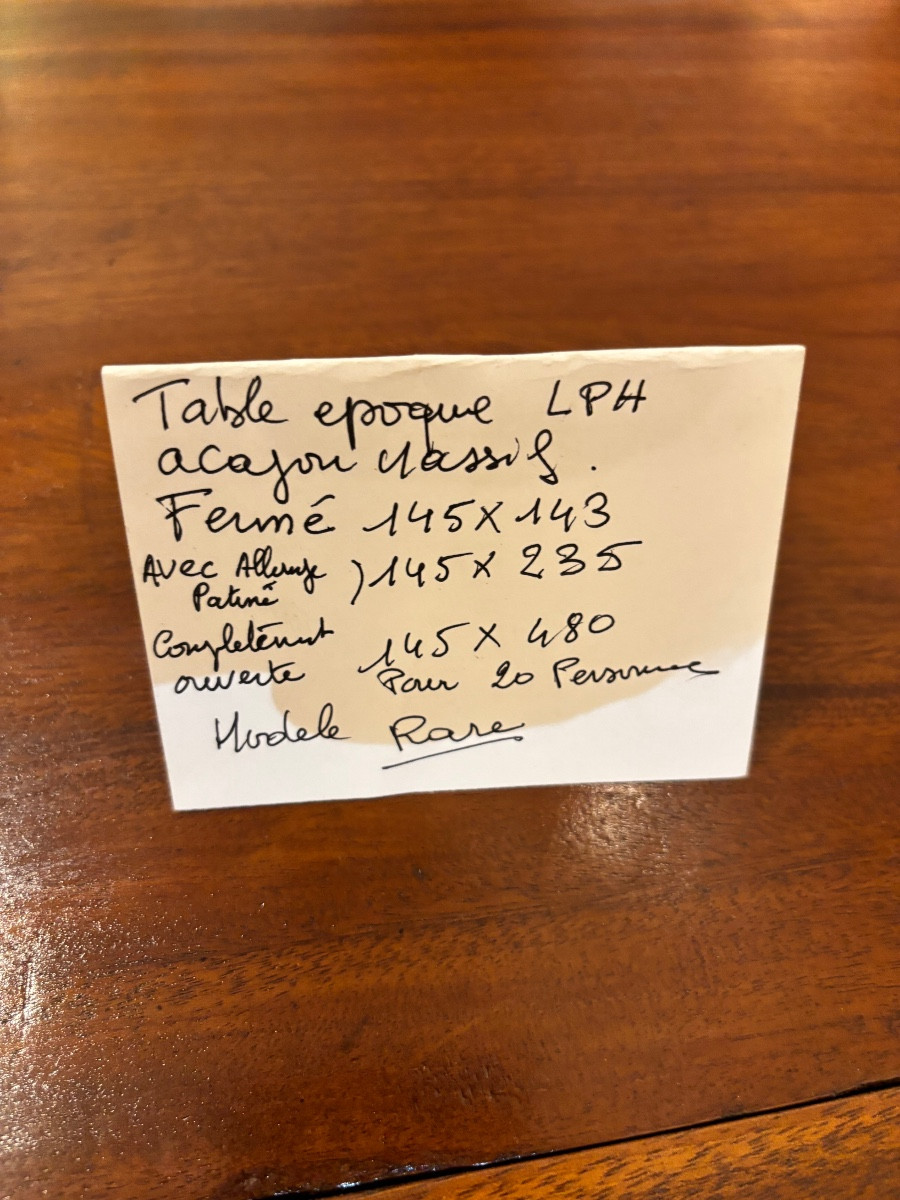 Table epoque LPH
acajou Massif.
Fermé 145 X 143
Avec Allonge ) 145 X 235
Patiné
Complétemt 145 X 480
ouverte Pour 20 Personnes
Modele Rare